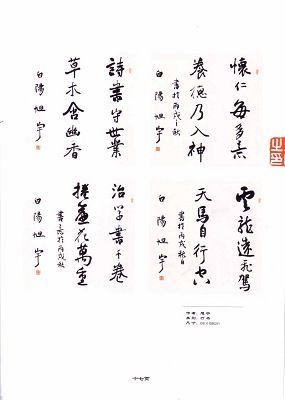 懷仁每多素
養德乃入神
書於丙戌之秋
白陽旭宇
詩書守世業
草木含幽香
白陽旭宇
雲龍遠飛駕
天馬自行空
書於丙戌秋日
白陽旭宇
治学書千卷
捲簾花萬重
於丙戌秋
白陽旭宇
作者：旭宇
十七页